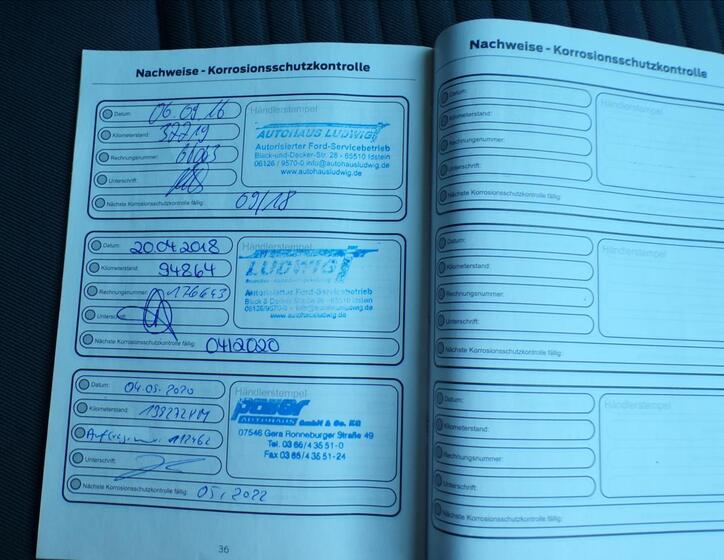 Nachweise - Korrosionsschutzkontrolle
Datum: 06.09.16
Kilometerstand: 37719
Rechnungsnummer:
Unterschrift:
Nächste Korrosionsschutzkontrolle fällig: 09/18
Händlerstempel
AUTOHAUS LUDWIG
Autorisierter Ford-Servicebetrieb
Black-und-Decker-Str. 28 - 65510 Idstein
06126 / 9570-0 info@autohausludwig.de
www.autohausludwig.de
Datum: 20.04.2018
Kilometerstand: 94864
Rechnungsnummer: 176643
Unterschrift:
Nächste Korrosionsschutzkontrolle fällig: 04/2020
Händlerstempel
LUDWIG
Autorisierter Ford-Servicebetrieb
www.autohausludwig.de
Datum: 04.05.2020
Kilometerstand: 198272 KM
Unterschrift:
Nächste Korrosionsschutzkontrolle fällig: 05/2022
Händlerstempel
AUTOHAUS GmbH & Co. KG
07546 Gera Ronneburger Straße 49
Tel. 03 65/4 35 51-0
Fax 03 65/4 35 51-24
36
Nachweise - Korrosionsschutzkontrolle
Datum:
Kilometerstand:
Rechnungsnummer:
Unterschrift:
Nächste Korrosionsschutzkontrolle fällig:
Händlerstempel
Datum:
Kilometerstand:
Rechnungsnummer:
Unterschrift:
Nächste Korrosionsschutzkontrolle fällig:
Händlerstempel
Datum:
Kilometerstand:
Rechnungsnummer:
Unterschrift:
Nächste Korrosionsschutzkontrolle fällig:
Händlerstempel